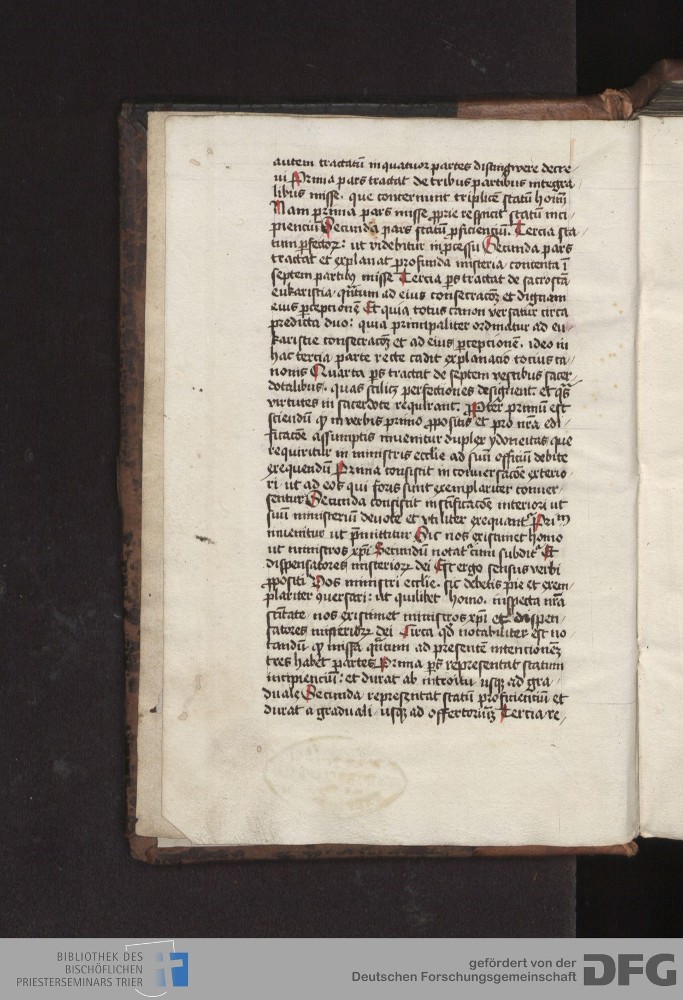 autem tractatū in quatuor partes distingwere decre
ui Prima pars tractat de tribus partibus integra
libus misse. que concernunt triplicē statū hoīm
Nam prima pars misse ꝓprie respicit statū inci
pienciū Secunda pars statū ꝓficienciū. Tercia sta
tum ꝑfectoꝝ: ut videbitur in ꝓcessu Secunda pars
tractat et explanat profunda misteria contenta ī
septem partibꝰ misse Tercia ꝑs tractat de sacrosctā
eukaristia. qn̄tum ad eius consecracōꝫ et dignam
eius ꝑcepcionē Et quia totus canon versatur circa
predicta duo: quia principaliter ordinatur ad eu
karistie consecracōꝫ et ad eius ꝑcepcionē. ideo in
hac tercia parte recte cadit explanacio tocius ca
nonis Quarta ꝑs tractat de septem vestibus sacer
dotalibus. quas scilicꝫ perfectiones designent. et q̄s
virtutes in sacerdote requirant. ꝓpter primū est
sciendū ꝙ in verbis primo ꝓpositis et pro nr̄a edi
ficacōe assumptis inuenitur duplex ydoneitas que
requiritur in ministris ecclīe ad suū officiū debite
exequendū Prima consistit in conuersacōe exterio
ri. ut ad eos qui foris sunt exemplariter conuer
sentur Secunda consistit in sc̄ificacōe interiori ut
suū ministeriū deuote et vtiliter exequantᷣ Primᷤ
innuitur ut p̄mittitur Sic nos existimet homo
ut ministros xp̄i Secundū notatᷣ cum subditᷣ Et
dispensatores misterioꝝ dei Est ergo sensus verbi
ꝓpositi Vos ministri ecclīe. sic debetis pie et exem
plariter ꝯuersari: ut quilibet homo. inspecta vrā
sc̄itate. nos existimet ministros xp̄i et dispen
satores misterioꝝ dei Circa qd̄ notabiliter est no
tandū ꝙ missa qn̄tum ad presentē intencionem
tres habet partes Prima ꝑs representat statum
incipienciū: et durat ab introitu usqꝫ ad gra
duale Secunda representat statū proficienciū et
durat a graduali usqꝫ ad offertoriūꝫ Tercia re
BIBLIOTHEK DES
BISCHÖFLICHEN
PRIESTERSEMINARS TRIER
gefördert von der
Deutschen Forschungsgemeinschaft
DFG